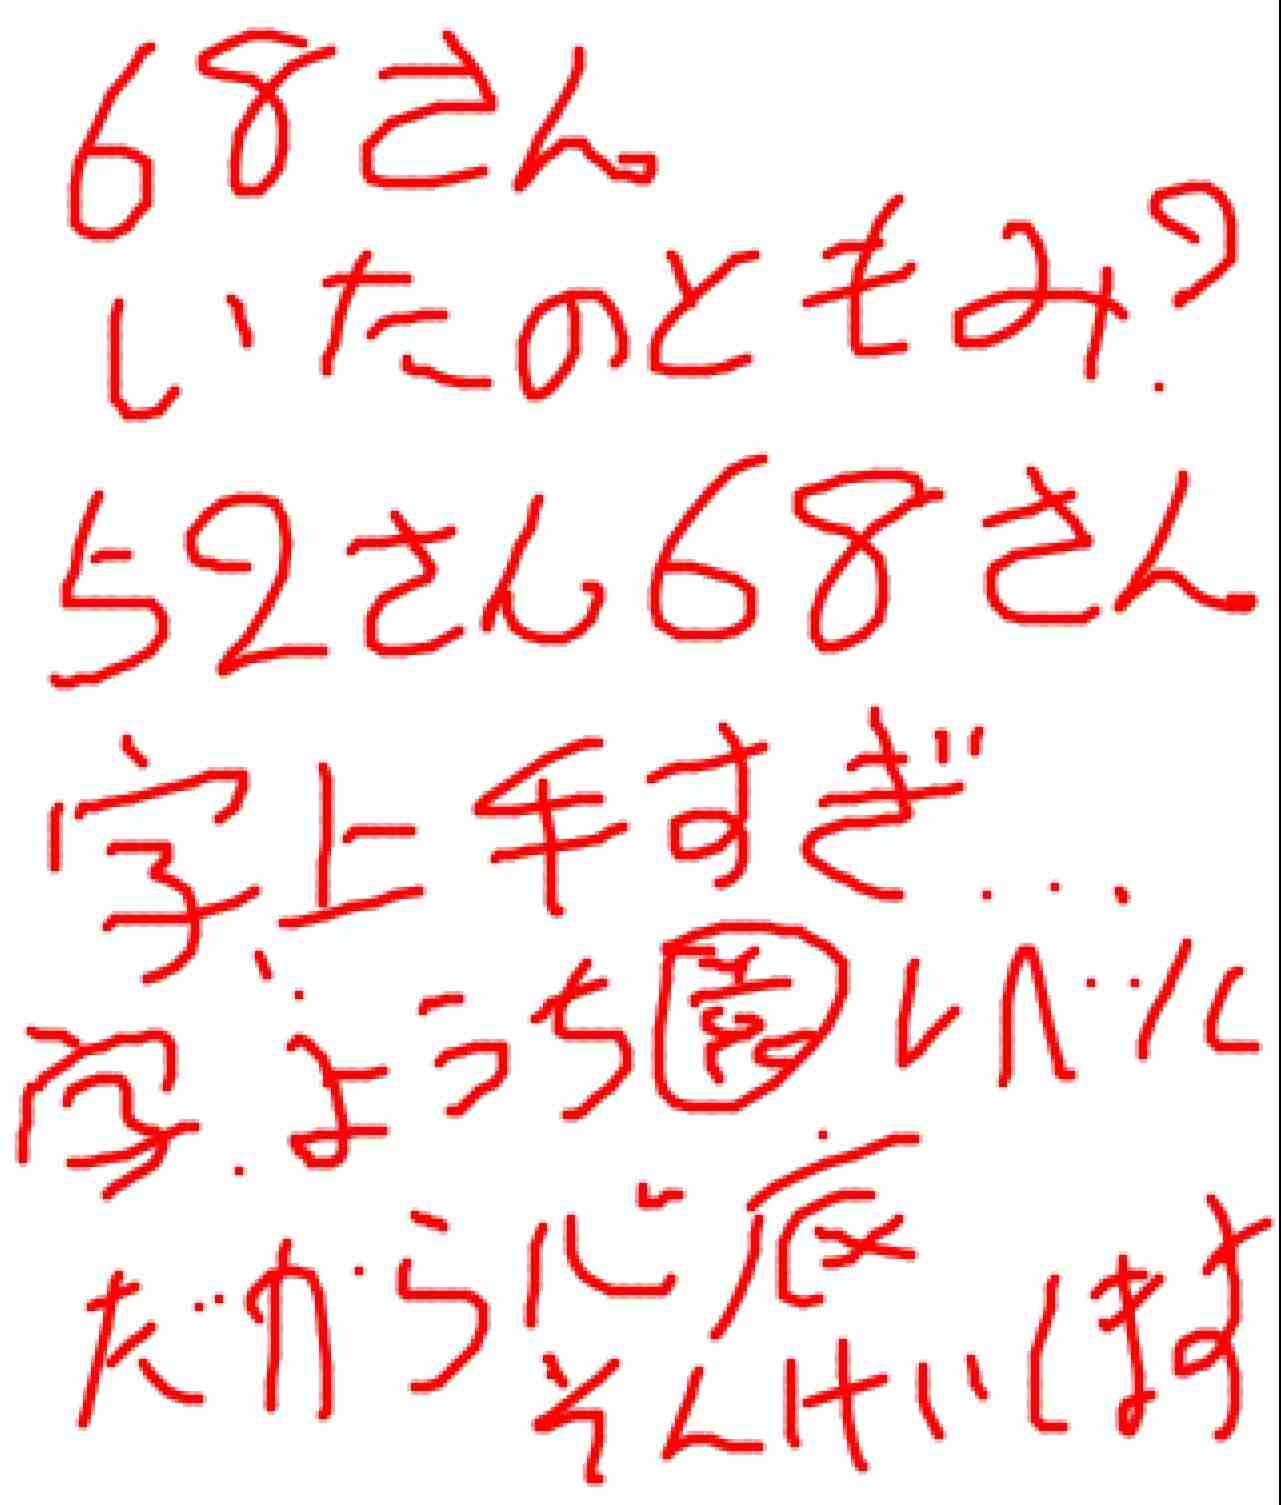 68さん
いたのともみ?
52さん68さん
字上手すぎ…
字ようち園レベル
だから心底
そんけいします